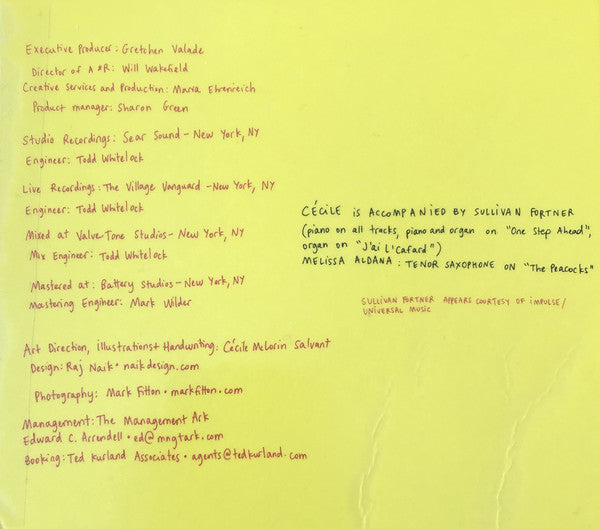 Executive Producer: Gretchen Valade
Director of A&R: Will Wakefield
Creative Services and Production: Maria Ehrenreich
Product manager: Sharon Green
Studio Recordings: Sear Sound - New York, NY
Engineer: Todd Whitelock
Live Recordings: The Village Vanguard - New York, NY
Engineer: Todd Whitelock
Mixed at Valve Tone Studios - New York, NY
Mix Engineer: Todd Whitelock
Mastered at: Battery Studios - New York, NY
Mastering Engineer: Mark Wilder
Art Direction, illustrations + Handwriting: Cécile McLorin Salvant
Design: Raj Naik • naikdesign.com
Photography: Mark Fitton • markfitton.com
Management: The Management Ark
Edward C. Arrendell • ed@mngtark.com
Booking: Ted Kurland Associates • agents@tedkurland.com
CÉCILE is ACCOMPANIED BY SULLIVAN FORTNER
(piano on all tracks, piano and organ on "One Step Ahead",
organ on "J'ai L'Cafard")
MELISSA ALDANA: TENOR SAXOPHONE ON "The Peacocks"
SULLIVAN FORTNER APPEARS COURTESY OF IMPULSE/
UNIVERSAL MUSIC